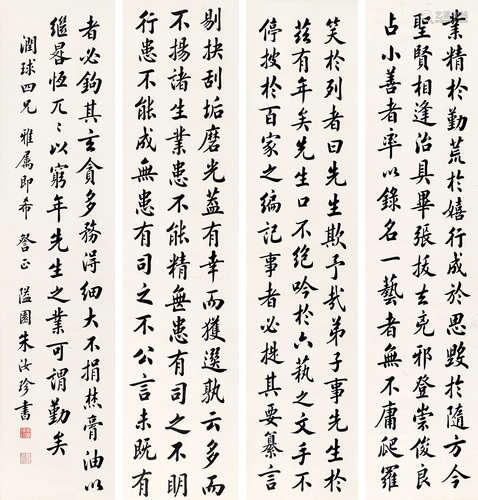 業精於勤荒於嬉行成於思毀於隨方今
聖賢相逢治具畢張拔去兇邪登崇俊良
占小善者率以錄名一藝者無不庸爬羅
笑於列者曰先生欺予哉弟子事先生於
茲有年矣先生口不絕吟於六藝之文手不
停披於百家之編記事者必提其要纂言
剔抉刮垢磨光蓋有幸而獲選孰云多而
不揚諸生業患不能精無患有司之不明
行患不能成無患有司之不公言未既有
者必鉤其玄貪多務得細大不捐焚膏油以
繼晷恆兀〻以窮年先生之業可謂勤矣
潤球四兄 雅屬即希 詧正 隘園朱汝珍書